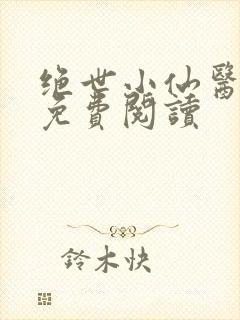 绝世小仙醫
免費閱讀
鈴木快